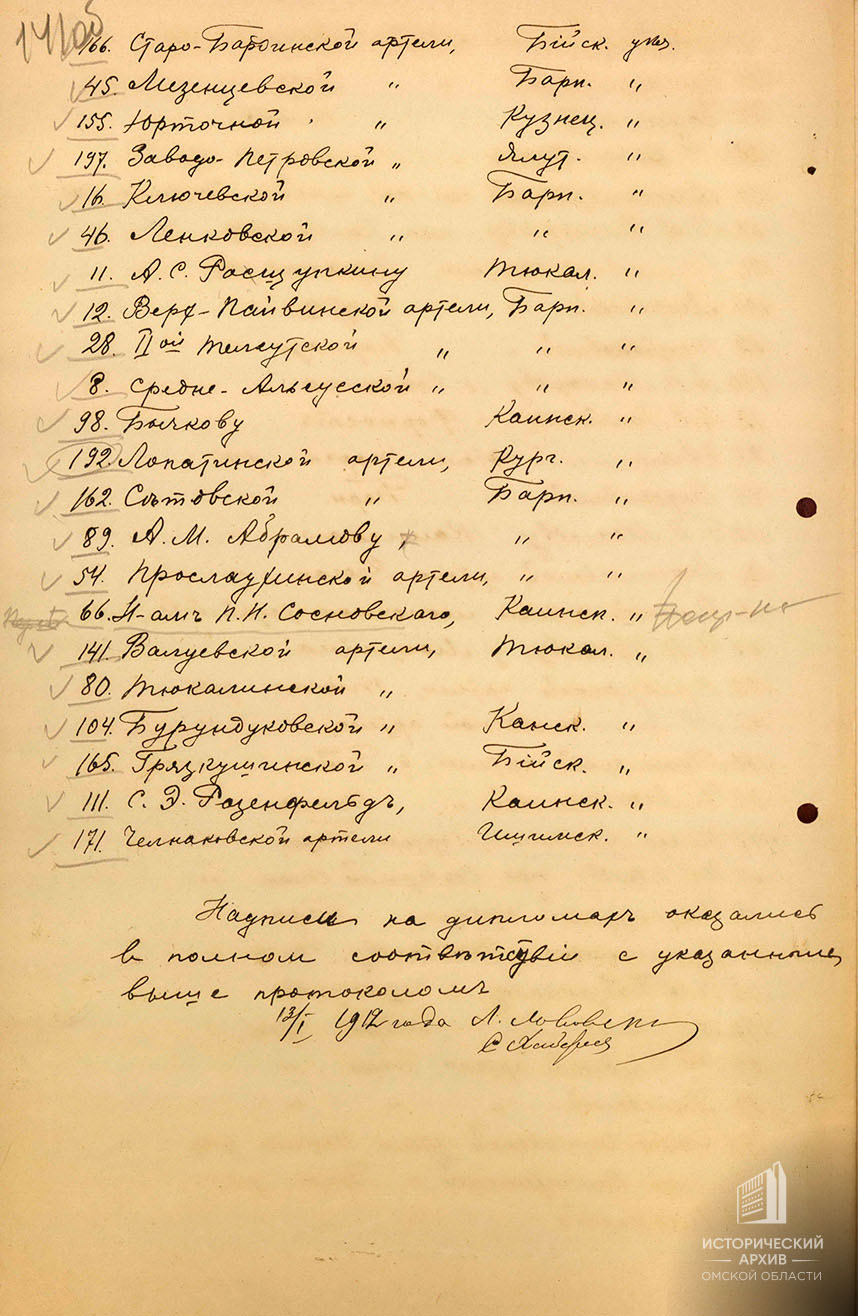 141об
166. Старо-Бардинской артели, Бійск. уѣз.
45. Мезенцевской " Барн. "
155. Юрточной " Кузнец. "
197. Заводо-Петровской " Ялут. "
16. Ключевской " Барн. "
46. Ленковской " " "
11. А. С. Рощупкину Тюкал. "
12. Верх-Пайвинской артели, Барн. "
28. IIой Телеутской " " "
8. Средне-Алеусской " " "
98. Бычкову Каинск. "
192. Лопатинской артели, Кург. "
162. Сѣтовской " Барн. "
89. А. М. Абрамову, " "
54. Прослаухинской артели, " "
66. Н-амъ П. И. Сосновскаго, Каинск. "
141. Валуевской артели, Тюкал. "
80. Тюкалинской "
104. Бурундуковской " Каинск. "
165. Грязнушинской " Бійск. "
111. С. Э. Розенфельдъ, Каинск. "
171. Челнаковской артели Ишимск. "
Надписи на дипломахъ оказались
в полном соотвѣтствіи с указанным
выше протоколомъ
13/I 1912 года Л.
С
ИСТОРИЧЕСКИЙ
АРХИВ
ОМСКОЙ ОБЛАСТИ